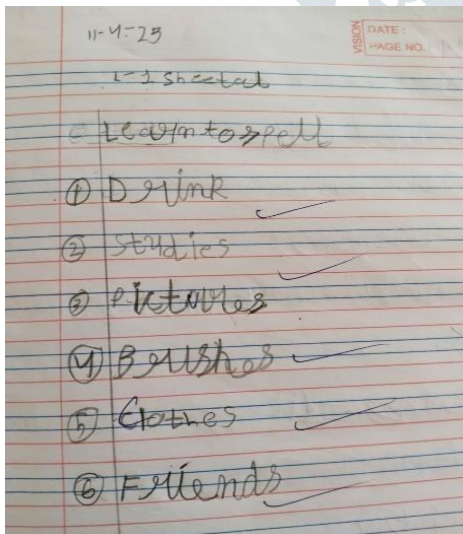 11-4-25
VISION
DATE:
PAGE NO.
L-1 Sheetal
Learn to spell
① Drink
② Studies
③ Pictures
④ Brushes
⑤ Clothes
⑥ Friends